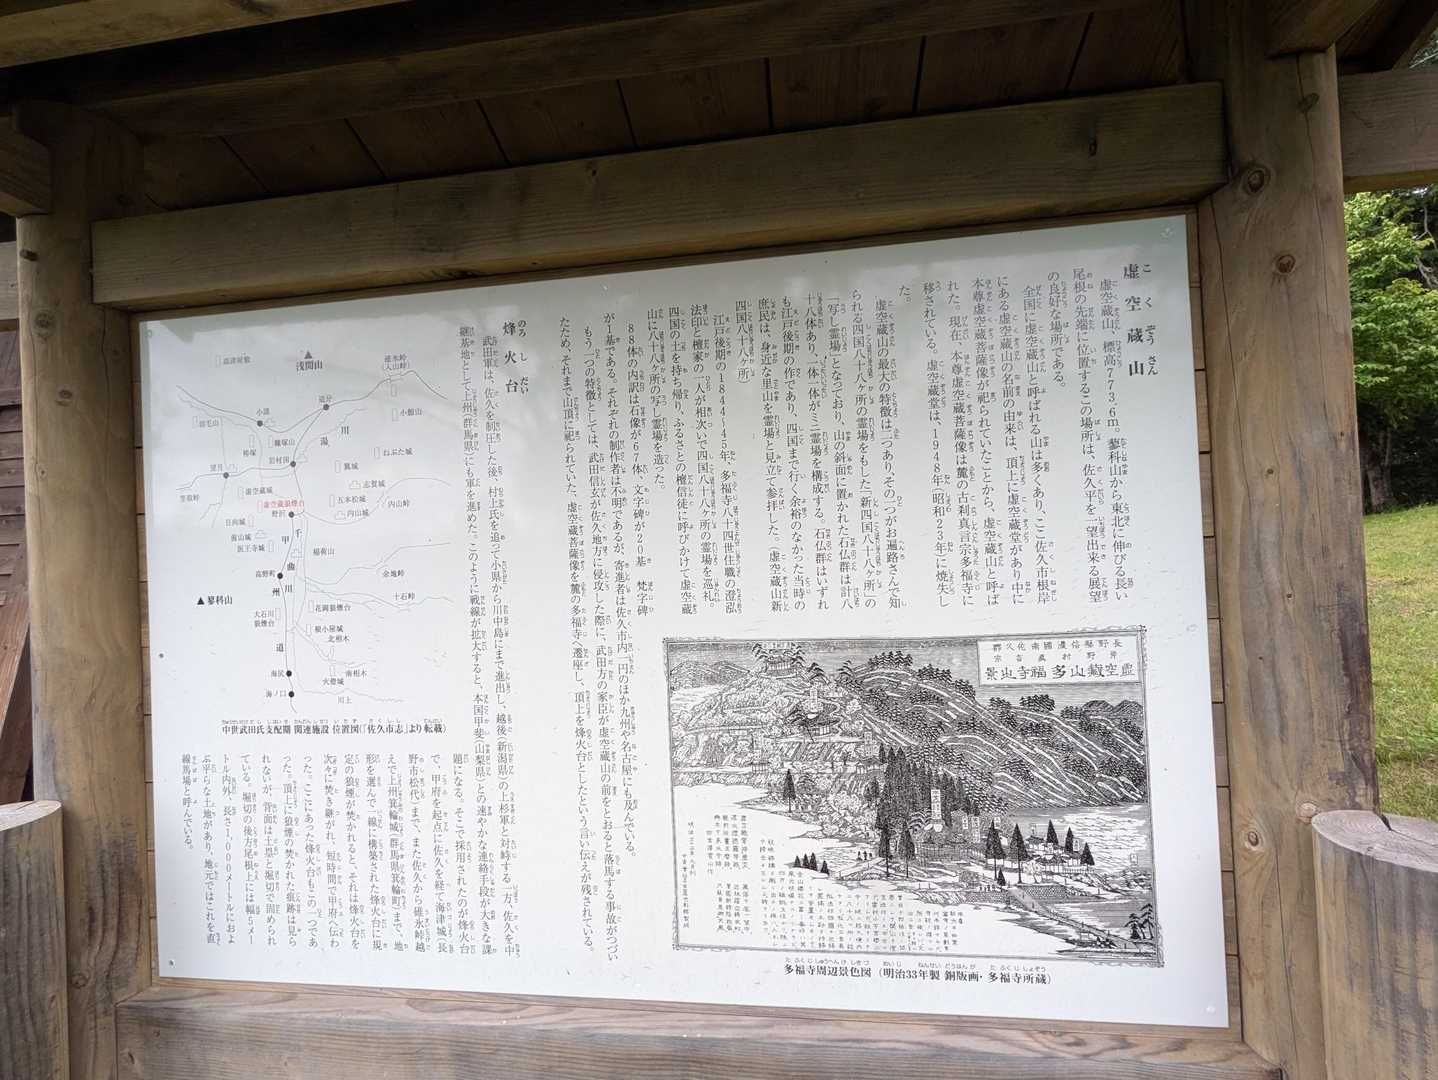 虚空蔵山
虚空蔵山、標高773.6m。蓼科山から東北に伸びる長い
尾根の先端に位置するこの場所は、佐久平を一望出来る展望
の良好な場所である。
全国に虚空蔵山と呼ばれる山は多くあり、ここ佐久市根岸
にある虚空蔵山の名前の由来は、頂上に虚空蔵堂があり中に
本尊虚空蔵菩薩像が祀られていたことから、虚空蔵山と呼ば
れた。現在、本尊虚空蔵菩薩像は麓の古刹真言宗多福寺に
移されている。虚空蔵堂は、1948年(昭和23年)に焼失し
た。
虚空蔵山の最大の特徴は二つあり、その一つがお遍路さんで知
られる四国八十八ヶ所の霊場をもした「新四国八十八ヶ所」の
「写し霊場」となっており、山の斜面に置かれた石仏群は計八
十八体あり、一体一体がミニ霊場を構成する。石仏群はいずれ
も江戸後期の作であり、四国まで行く余裕のなかった当時の
庶民は、身近な里山を霊場と見立て参拝した。(虚空蔵山新
四国八十八ヶ所)
江戸後期の1844〜45年、多福寺八十四世住職の澄弘
法印と檀家の一人が相次いで四国八十八ヶ所の霊場を巡礼。
四国の土を持ち帰り、ふるさとの檀信徒に呼びかけて虚空蔵
山に八十八ヶ所の写し霊場を造った。
88体の内訳は石像が67体、文字碑が20基、梵字碑
が1基である。それぞれの制作者は不明であるが、寄進者は佐久市内一円のほか九州や名古屋にも及んでいる。
もう一つの特徴としては、武田信玄が佐久地方に侵攻した際に、武田方の家臣が虚空蔵山の前をとおると落馬する事故がつづい
たため、それまで山頂に祀られていた、虚空蔵菩薩像を麓の多福寺へ遷座し、頂上を烽火台としたという言い伝えが残されている。
烽火台
武田軍は、佐久を制圧した後、村上氏を追って小県から川中島にまで進出し、越後(新潟県)の上杉軍と対峙する一方、佐久を中
継基地として上州(群馬県)にも軍を進めた。このように戦線が拡大すると、本国甲斐(山梨県)との速やかな連絡手段が大きな課
題になる。そこで採用されたのが烽火台
で、甲府を起点に佐久を経て海津城(長
野市松代)まで、また佐久から碓氷峠越
えで上州箕輪城(群馬県箕輪町)まで、地
形を選んで一線に構築された烽火台に規
定の狼煙が焚かれると、それは烽火台を
次々に焚き継がれ、短時間で甲府へ伝わ
った。ここにあった烽火台もこの一つであ
った。頂上に狼煙の焚かれた痕跡は見ら
れないが、背面は土塁と堀切で固められ
ている。堀切の後方尾根上には幅5メー
トル内外、長さ1,000メートルにおよ
ぶ平らな土地があり、地元ではこれを直
線馬場と呼んでいる。
浅間山
碓氷峠
(入山峠)
追分
小諸
小飯山
湯
川
糠塚山
岩村田
ねぶた城
望月
翼城
志賀城
虚空蔵城
虚空蔵狼煙台
五本松城
内山峠
内山城
笠取峠
野沢
前山城
医王寺城
千
曲
川
甲
州
道
稲荷山
高野町
余地峠
十石峠
蓼科山
大石川
狼煙台
花岡狼煙台
根小屋城
北相木
海尻
南相木
火燈城
海ノ口
川上
中世武田氏支配期 関連施設 位置図(「佐久市志」より転載)
長野縣信濃國南佐久郡
岸野村真言宗
虚空蔵山多福寺之景
多福寺周辺景色図 (明治33年製 銅版画・多福寺所蔵)